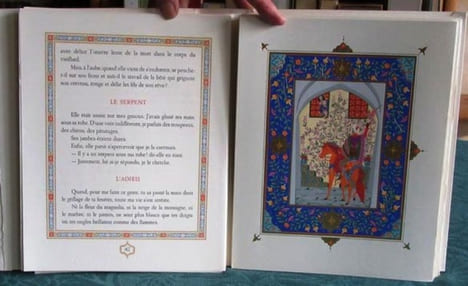 avec délice l'œuvre lente de la mort dans le corps du
vieillard.
Mais, à l'aube, quand elle vient de s'endormir, se penche-
t-il sur son front et suit-il le travail de la bête qui grignote
son cerveau, ronge et délite les fils de son rêve ?
LE SERPENT
Elle était assise sur mes genoux. J'avais glissé ma main
sous sa robe. D'une voix indifférente, je parlais des troupeaux,
des chiens, des pâturages.
Ses jambes étaient dures.
Enfin, elle parut s'apercevoir que je la caressais.
— Il y a un serpent sous ma robe ! dit-elle en riant.
— Justement, lui ai-je répondu, je le cherche.
L'ADIEU
Quand, pour me faire ce geste, tu as passé la main dans
le grillage de ta fenêtre, toute ma vie s'est arrêtée.
Ni la fleur du magnolia, ni la neige de la montagne, ni
le marbre, ni le jasmin, ne sont plus blancs que tes doigts
où tes ongles brillaient comme des flammes.